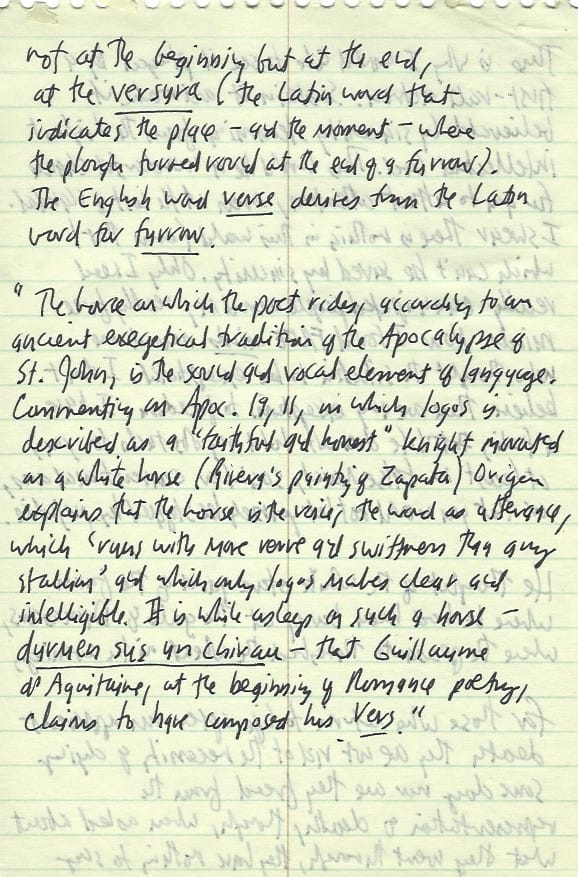 not at the beginning but at the end,
at the versura (the Latin word that
indicates the place – and the moment – where
the plough turned round at the end of a furrow).
The English word verse derives from the Latin
word for furrow.
" The horse on which the poet rides, according to an
ancient exegetical tradition of the Apocalypse of
St. John, is the sound and vocal element of language.
Commenting on Apoc. 19, 11, in which logos is
described as a "faithful and honest" knight mounted
on a white horse (Rivera's painting of Zapata) Origen
explains that the horse is the voice, the word as utterance,
which 'runs with more verve and swiftness than any
stallion' and which only logos makes clear and
intelligible. It is while asleep on such a horse –
durmen sus un chivau – that Guillaume
d'Aquitaine, at the beginning of Romance poetry,
claims to have composed his Vers."